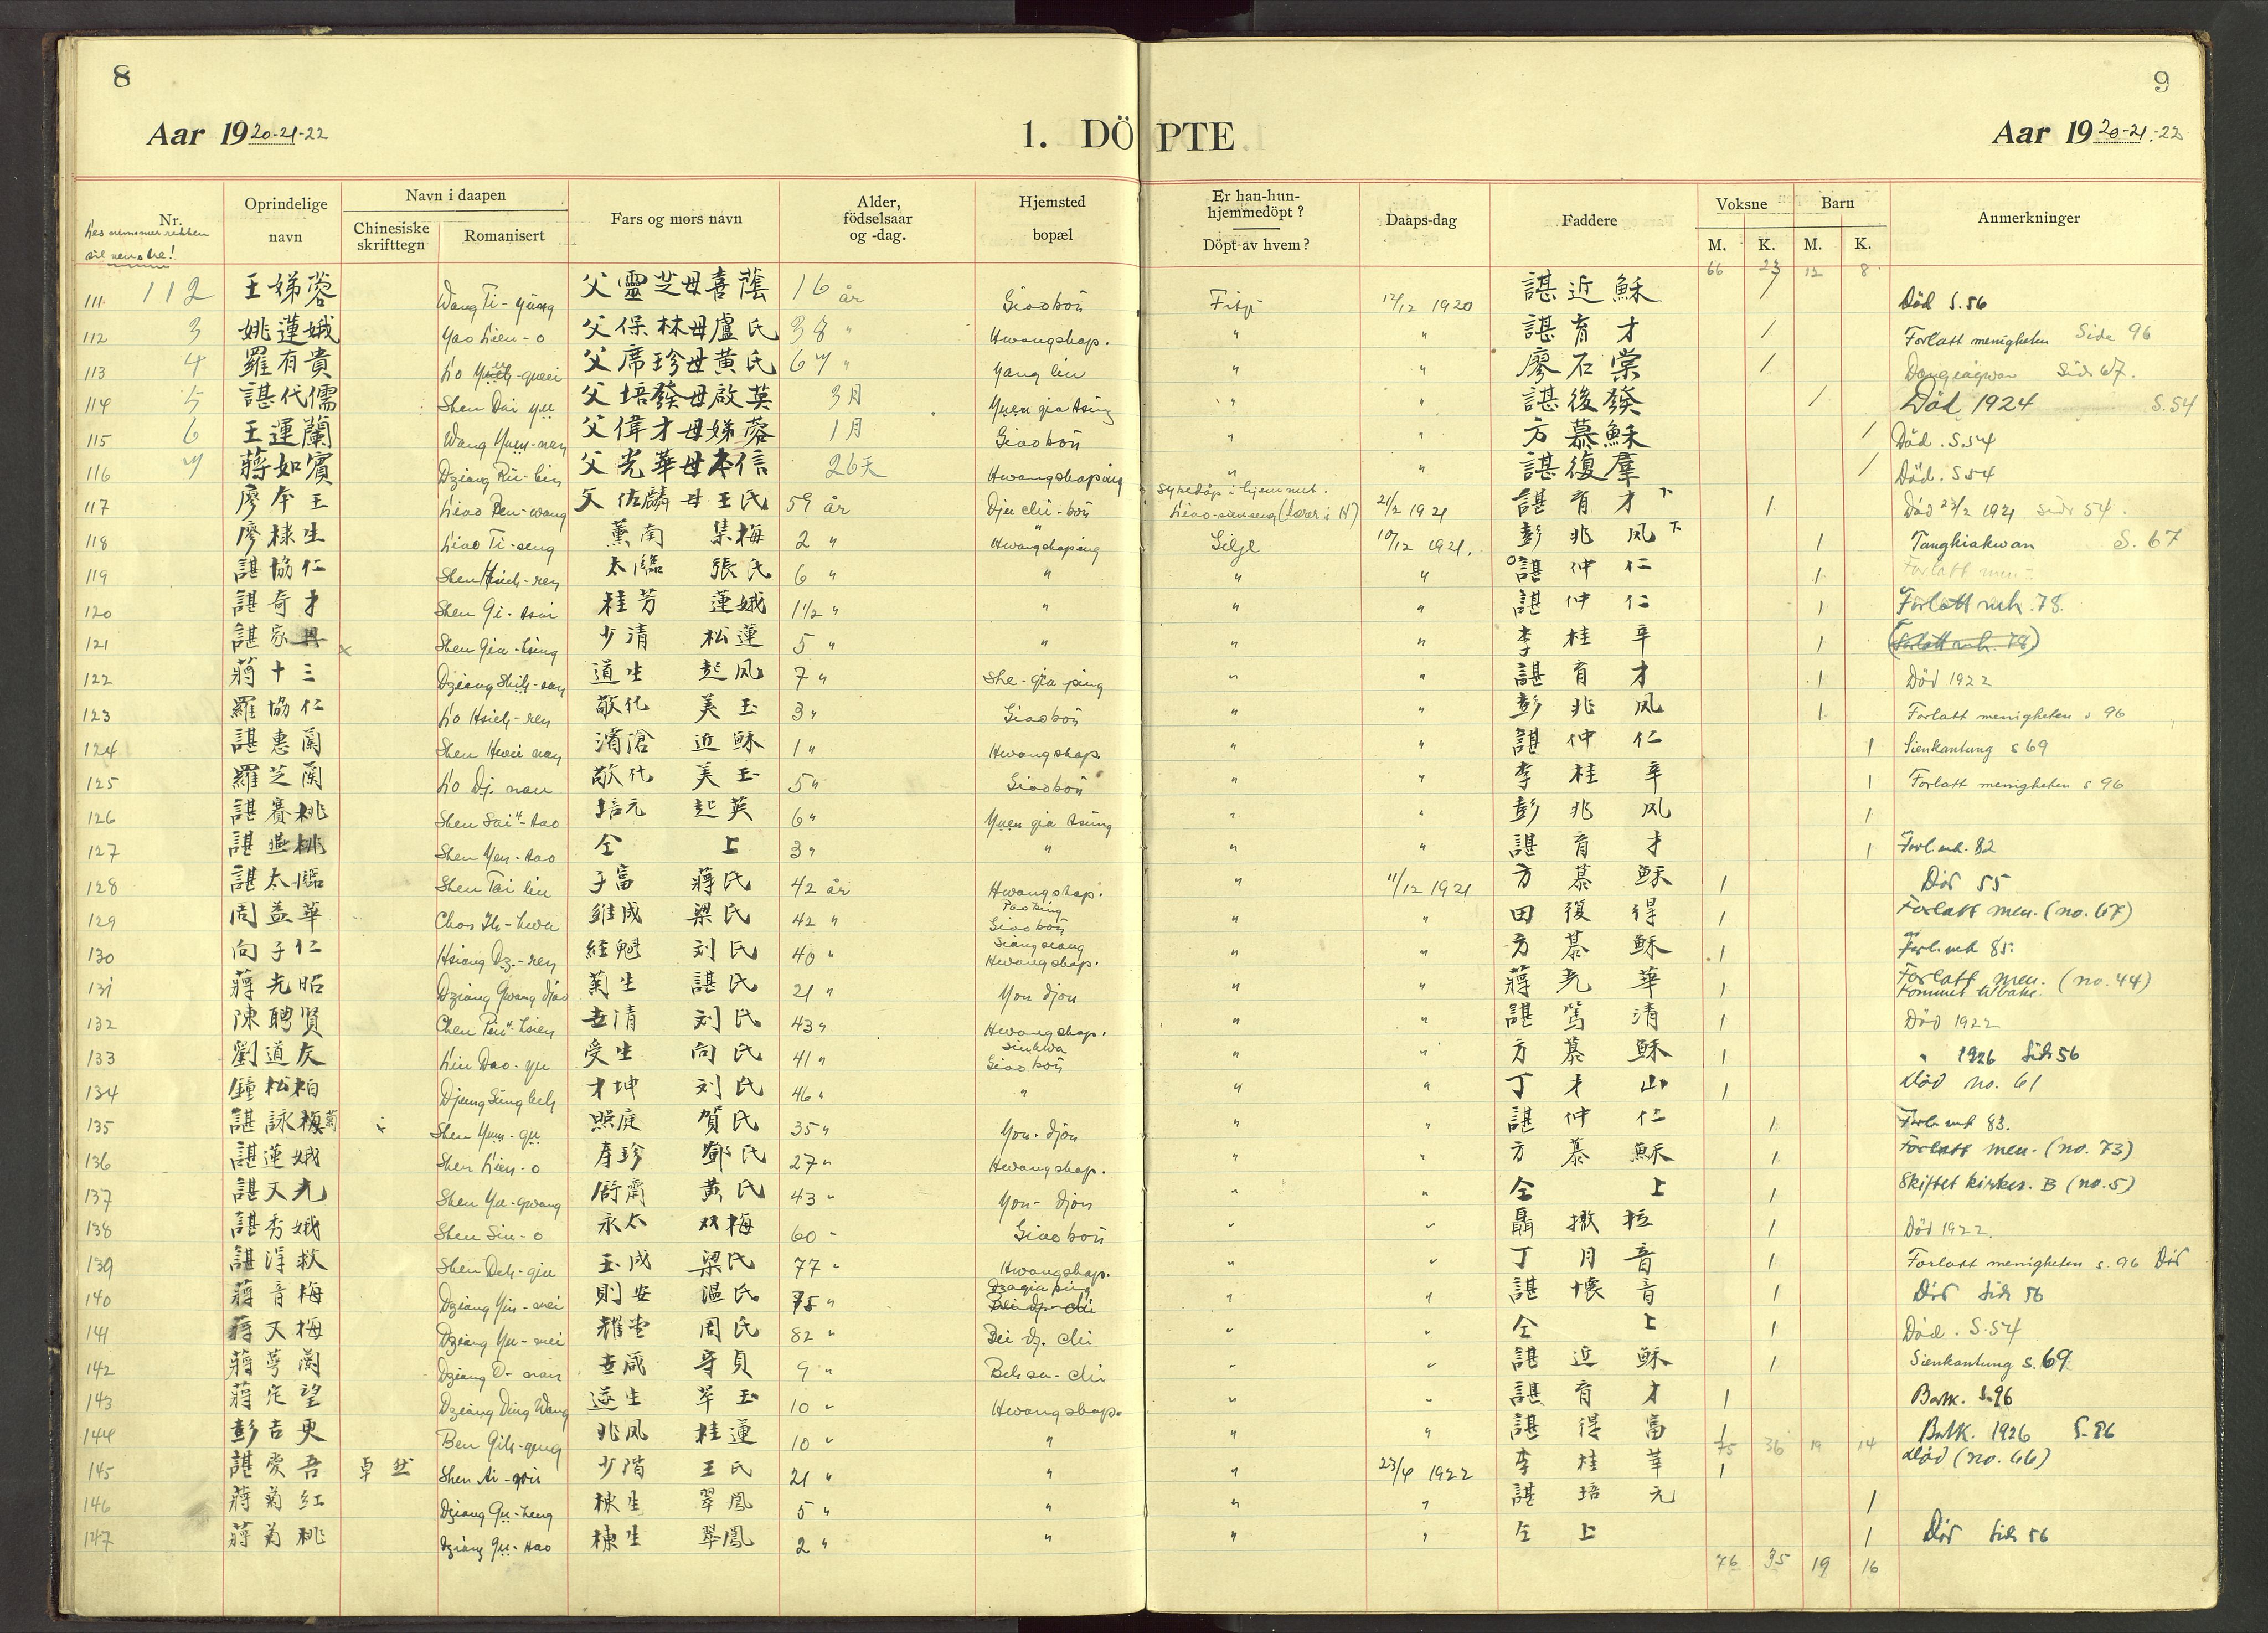 8
9
Aar 1920-21-22
1. DÖPTE
Aar 1920-21-22
Nr.
Oprindelige navn
Navn i daapen
Chinesiske skrifttegn
Romanisert
Fars og mors navn
Alder, födselsaar og -dag.
Hjemsted bopæl
Er han-hun-hjemmedöpt?
Döpt av hvem?
Daaps-dag
Faddere
Voksne
M.
K.
Barn
M.
K.
Anmerkninger
66 23 12 8
111 112 王娣蓉 Wang Ti-yüng 父靈芝母喜蔭 16 år Giaoboñ Fitje 12/12 1920 諶近穌 / Död S.56
112 3 姚蓮娥 Yao Lien-o 父保林母盧氏 38 " Hwangshap. " " 諶育才 / Forlatt menigheten Side 96
113 4 羅有貴 Lo 父席珍母黄氏 67 " Yang lin " " 廖石棠 / Side 67.
114 5 諶代儒 Shen Dai yu 父培發母啟英 3月 Yuen gia tsing " " 諶後發 / Död 1924 S.54
115 6 王運蘭 Wang Yuin-nan 父偉才母娣蓉 1月 Giaoboñ " " 方慕穌 / Död. S.54
116 7 蔣如賓 Dziang Ru-bin 父光華母本信 26天 Hwangshaping " " 諶復羣 / Död. S54
117 廖本王 Liao Ben-wang 父佐麟母王氏 59 år Djin chi-boñ Sykedåp i hjemmet. Liao-sienseng (Lærer i H) 21/2 1921 諶育才 1 Död 23/2 1921 side 54.
118 廖棣生 Liao Ti-seng 薰南 集梅 2 " Hwangshaping Gilje 10/12 1921. 彭兆风 1 Tangkiakwan S. 67
119 諶協仁 Shen Hsieh-ren 太臨 張氏 6 " " " " 諶仲仁 1 Forlatt men-
120 諶奇才 Shen Gi-tsai 桂芳 蓮娥 1½ " " " " 諶仲仁 1 Forlatt mh. 78.
121 諶家興 Shen Gia-hsing 少清 松蓮 5 " " " " 李桂辛 1 (Forlatt mh. 78)
122 蔣十三 Dziang Shih-san 道生 起风 7 " She-gia-ping " " 諶育才 1 Död 1922
123 羅協仁 Lo Hsieh-ren 敬化 美玉 3 " Giaoboñ " " 彭兆风 1 Forlatt menigheten s 96
124 諶惠蘭 Shen Hwei nan 濱滄 近穌 1 " Hwangshap. " " 諶仲仁 1 Sienkantung s 69
125 羅芝蘭 Lo Dj. nan 敬化 美玉 5 " Giaoboñ " " 李桂辛 1 Forlatt menigheten s 96
126 諶賽桃 Shen Sai-tao 培元 起英 6 " Yuen gia tsing " " 彭兆风 1
127 諶燕桃 Shen Yen-tao 仝上 3 " " " " 諶育才 1 Forl. mh. 82
128 諶太臨 Shen Tai lin 子富 蔣氏 42 år Hwangshap. " 11/12 1921 方慕穌 1 Död 55
129 周益華 Chou Ih-hwa 維成 梁氏 42 " Paoking Giaoboñ " " 田復得 1 Forlatt men. (no. 67)
130 向子仁 Hsiang Dz.-ren 經魁 刘氏 40 " Siangsiang Hwangshap. " " 方慕穌 1 Forl. mh 85.
131 蔣光昭 Dziang Gwang djao 菊生 諶氏 21 " You djou " " 蔣光華 1 Forlatt men. (no. 44) Kommet tilbake.
132 陳聘賢 Chen Pin-hsien 世清 刘氏 43 " Hwangshap. " " 諶篤清 1 Död 1922
133 劉道友 Liu Dao-yu 受生 向氏 41 " Sinhwa Giaoboñ " " 方慕穌 1 " 1926 Side 56
134 鐘松柏 Djung Sung beh 才坤 刘氏 46 " " " " 丁才山 1 död no. 61
135 諶詠梅菊 Shen Yuin-gu 照庭 賀氏 35 " You-djou " " 諶仲仁 1 Forl. mh 83.
136 諶蓮娥 Shen Lien-o 寿珍 鄧氏 27 " Hwangshap. " " 方慕穌 1 Forlatt men. (no. 73)
137 諶又光 Shen Yu-gwang 黃氏 43 " You-djou " " 仝上 1 Skiftet kirker. B (no. 5)
138 諶秀娥 Shen Siu-o 永太 双梅 60 " Giaoboñ " " 聶撒拉 1 Död 1922.
139 諶得救 Shen Deh-giu 玉成 梁氏 77 " Hwangshap. " " 丁月音 1 Forlatt menigheten s. 96 Död
140 蔣音梅 Dziang Yin-mei 則安 溫氏 75 " " " 諶懷音 1 Död Side 56
141 蔣又梅 Dziang Yu-mei 耀堂 周氏 82 " Bei dj. chi " " 仝上 1 Död. S.54
142 蔣萼蘭 Dziang O-nan 世箴 守貞 9 " Beh sa-chi " " 諶近穌 1 Sienkantung s. 69
143 蔣定望 Dziang Ding Wang 遂生 翠玉 10 " Hwangshap. " " 諶育才 1 Batk. S. 96
144 彭吉更 Ben Gih-geng 兆风 桂蓮 10 " " " " 諶得富 1 Batk. 1926 S-86
75 36 19 14
145 諶愛吾 卓然 Shen Ai-wu 少階 王氏 21 " " " 23/4 1922 李桂華 1 död (no. 66)
146 蔣菊紅 Dziang Gu-heng 棟生 翠鳳 5 " " " " 諶培元 1
147 蔣菊桃 Dziang Gu-tao 棟生 翠鳳 2 " " " " 仝上 1 Död Side 56
76 35 19 16